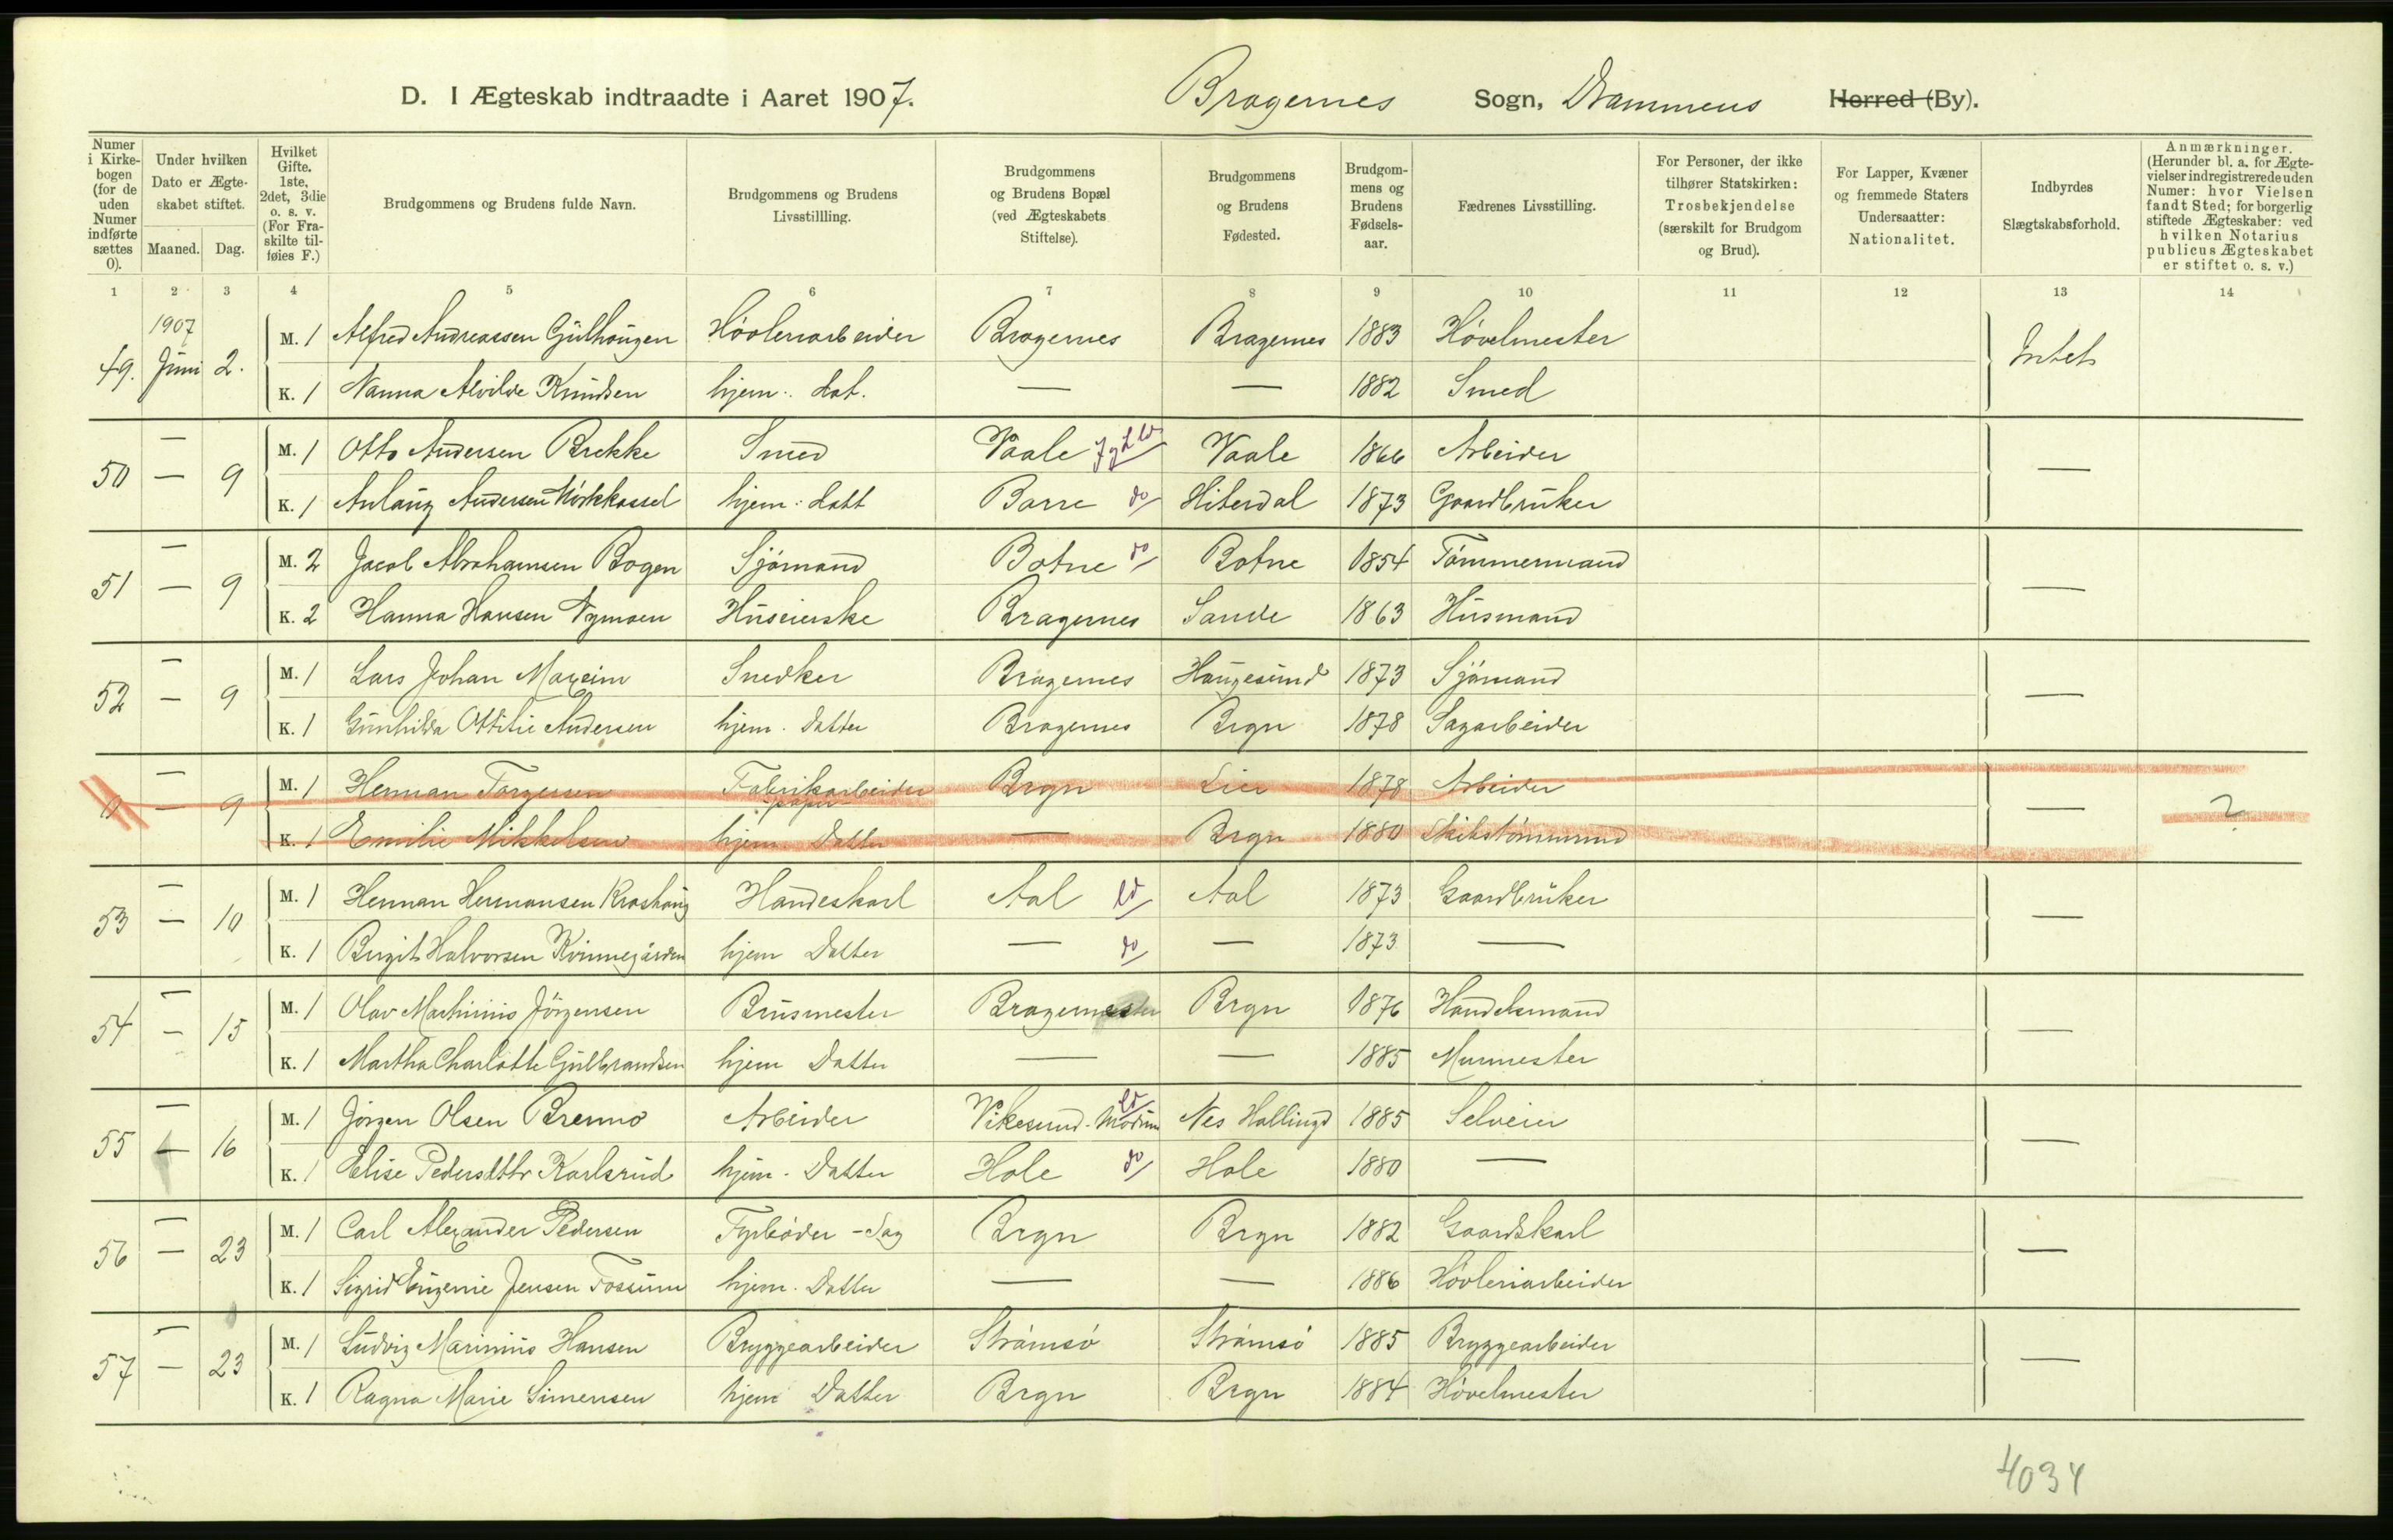 D. I Ægteskab indtraadte i Aaret 1907. Bragernes Sogn, Drammens Herred (By).
Numer i Kirkebogen (for de uden Numer indførte sættes 0). Under hvilken Dato er Ægteskabet stiftet. Maaned. Dag. Hvilket Gifte. 1ste, 2det, 3die o. s. v. (For Fraskilte tilføies F.) Brudgommens og Brudens fulde Navn. Brudgommens og Brudens Livsstillling. Brudgommens og Brudens Bopæl (ved Ægteskabets Stiftelse). Brudgommens og Brudens Fødested. Brudgommens og Brudens Fødselsaar. Fædrenes Livsstilling. For Personer, der ikke tilhører Statskirken: Trosbekjendelse (særskilt for Brudgom og Brud). For Lapper, Kvæner og fremmede Staters Undersaatter: Nationalitet. Indbyrdes Slægtskabsforhold. Anmærkninger. (Herunder bl. a. for Ægtevielser indregistrerede uden Numer: hvor Vielsen fandt Sted; for borgerlig stiftede Ægteskaber: ved hvilken Notarius publicus Ægteskabet er stiftet o. s. v.)
1 2 3 4 5 6 7 8 9 10 11 12 13 14
1907
49. Juni 2. M. 1 Alfred Andreassen Gulhaugen Høvleriarbeider Bragernes Bragernes 1883 Høvelmester Intet
K. 1 Nanna Alvilde Knudsen hjem: dat. — — 1882 Smed
50 — 9 M. 1 Otto Andersen Brekke Smed Vaale Vaale 1866 Arbeider —
K. 1 Anlaug Andersen hjem: datt Borre do Hiterdal 1873 Gaardbruker
51 — 9 M. 2 Jacob Abrahamsen Bogen Sjömand Botne do Botne 1854 Tömmermand —
K. 2 Hanna Hansen Nymoen Huseierske Bragernes Sande 1863 Husmand
52 — 9 M. 1 Lars Johan Maxeim Snedker Bragernes Haugesund 1873 Sjömand —
K. 1 Gunhilda Ottilie Andersen hjem. Datter Bragernes Brgn 1878 Sagarbeider
0 — 9 M. 1 Herman Torgersen Fabrikarbeider papir Brgn Lier 1878 Arbeider — ?
K. 1 Emilie Mikkelsen hjem Datter — Brgn 1880 Skibstömmermd
53 — 10 M. 1 Herman Hermansen Kroshaug Handeskarl Aal ld Aal 1873 Gaardbruker —
K. 1 Birgit Halvorsen Kvinnegården hjem Datter — do — 1873 —
54 — 15 M. 1 Olav Marthinius Jörgensen Brusmester Bragernes Brgn 1876 Handelsmand —
K. 1 Martha Charlotte Gulbrandsen hjem Datter — — 1885 Murmester
55 — 16 M. 1 Jörgen Olsen Brenno Arbeider Vikesund. Modum ld Nes Hallingd 1885 Selveier —
K. 1 Elise Pedersdttr Karlsrud hjem. Datter Hole do Hole 1880 —
56 — 23 M. 1 Carl Alexander Pedersen Fyrbøder - Sag Brgn Brgn 1882 Gaardskarl —
K. 1 Sigrid Eugenie Jensen Fossum hjem. Datter — — 1886 Høvleriarbeider
57 — 23 M. 1 Ludvig Marinius Hansen Bryggearbeider Strømsö Strømsö 1885 Bryggearbeider —
K. 1 Ragna Marie Simensen hjem Datter Brgn Brgn 1884 Hövelmester
4034